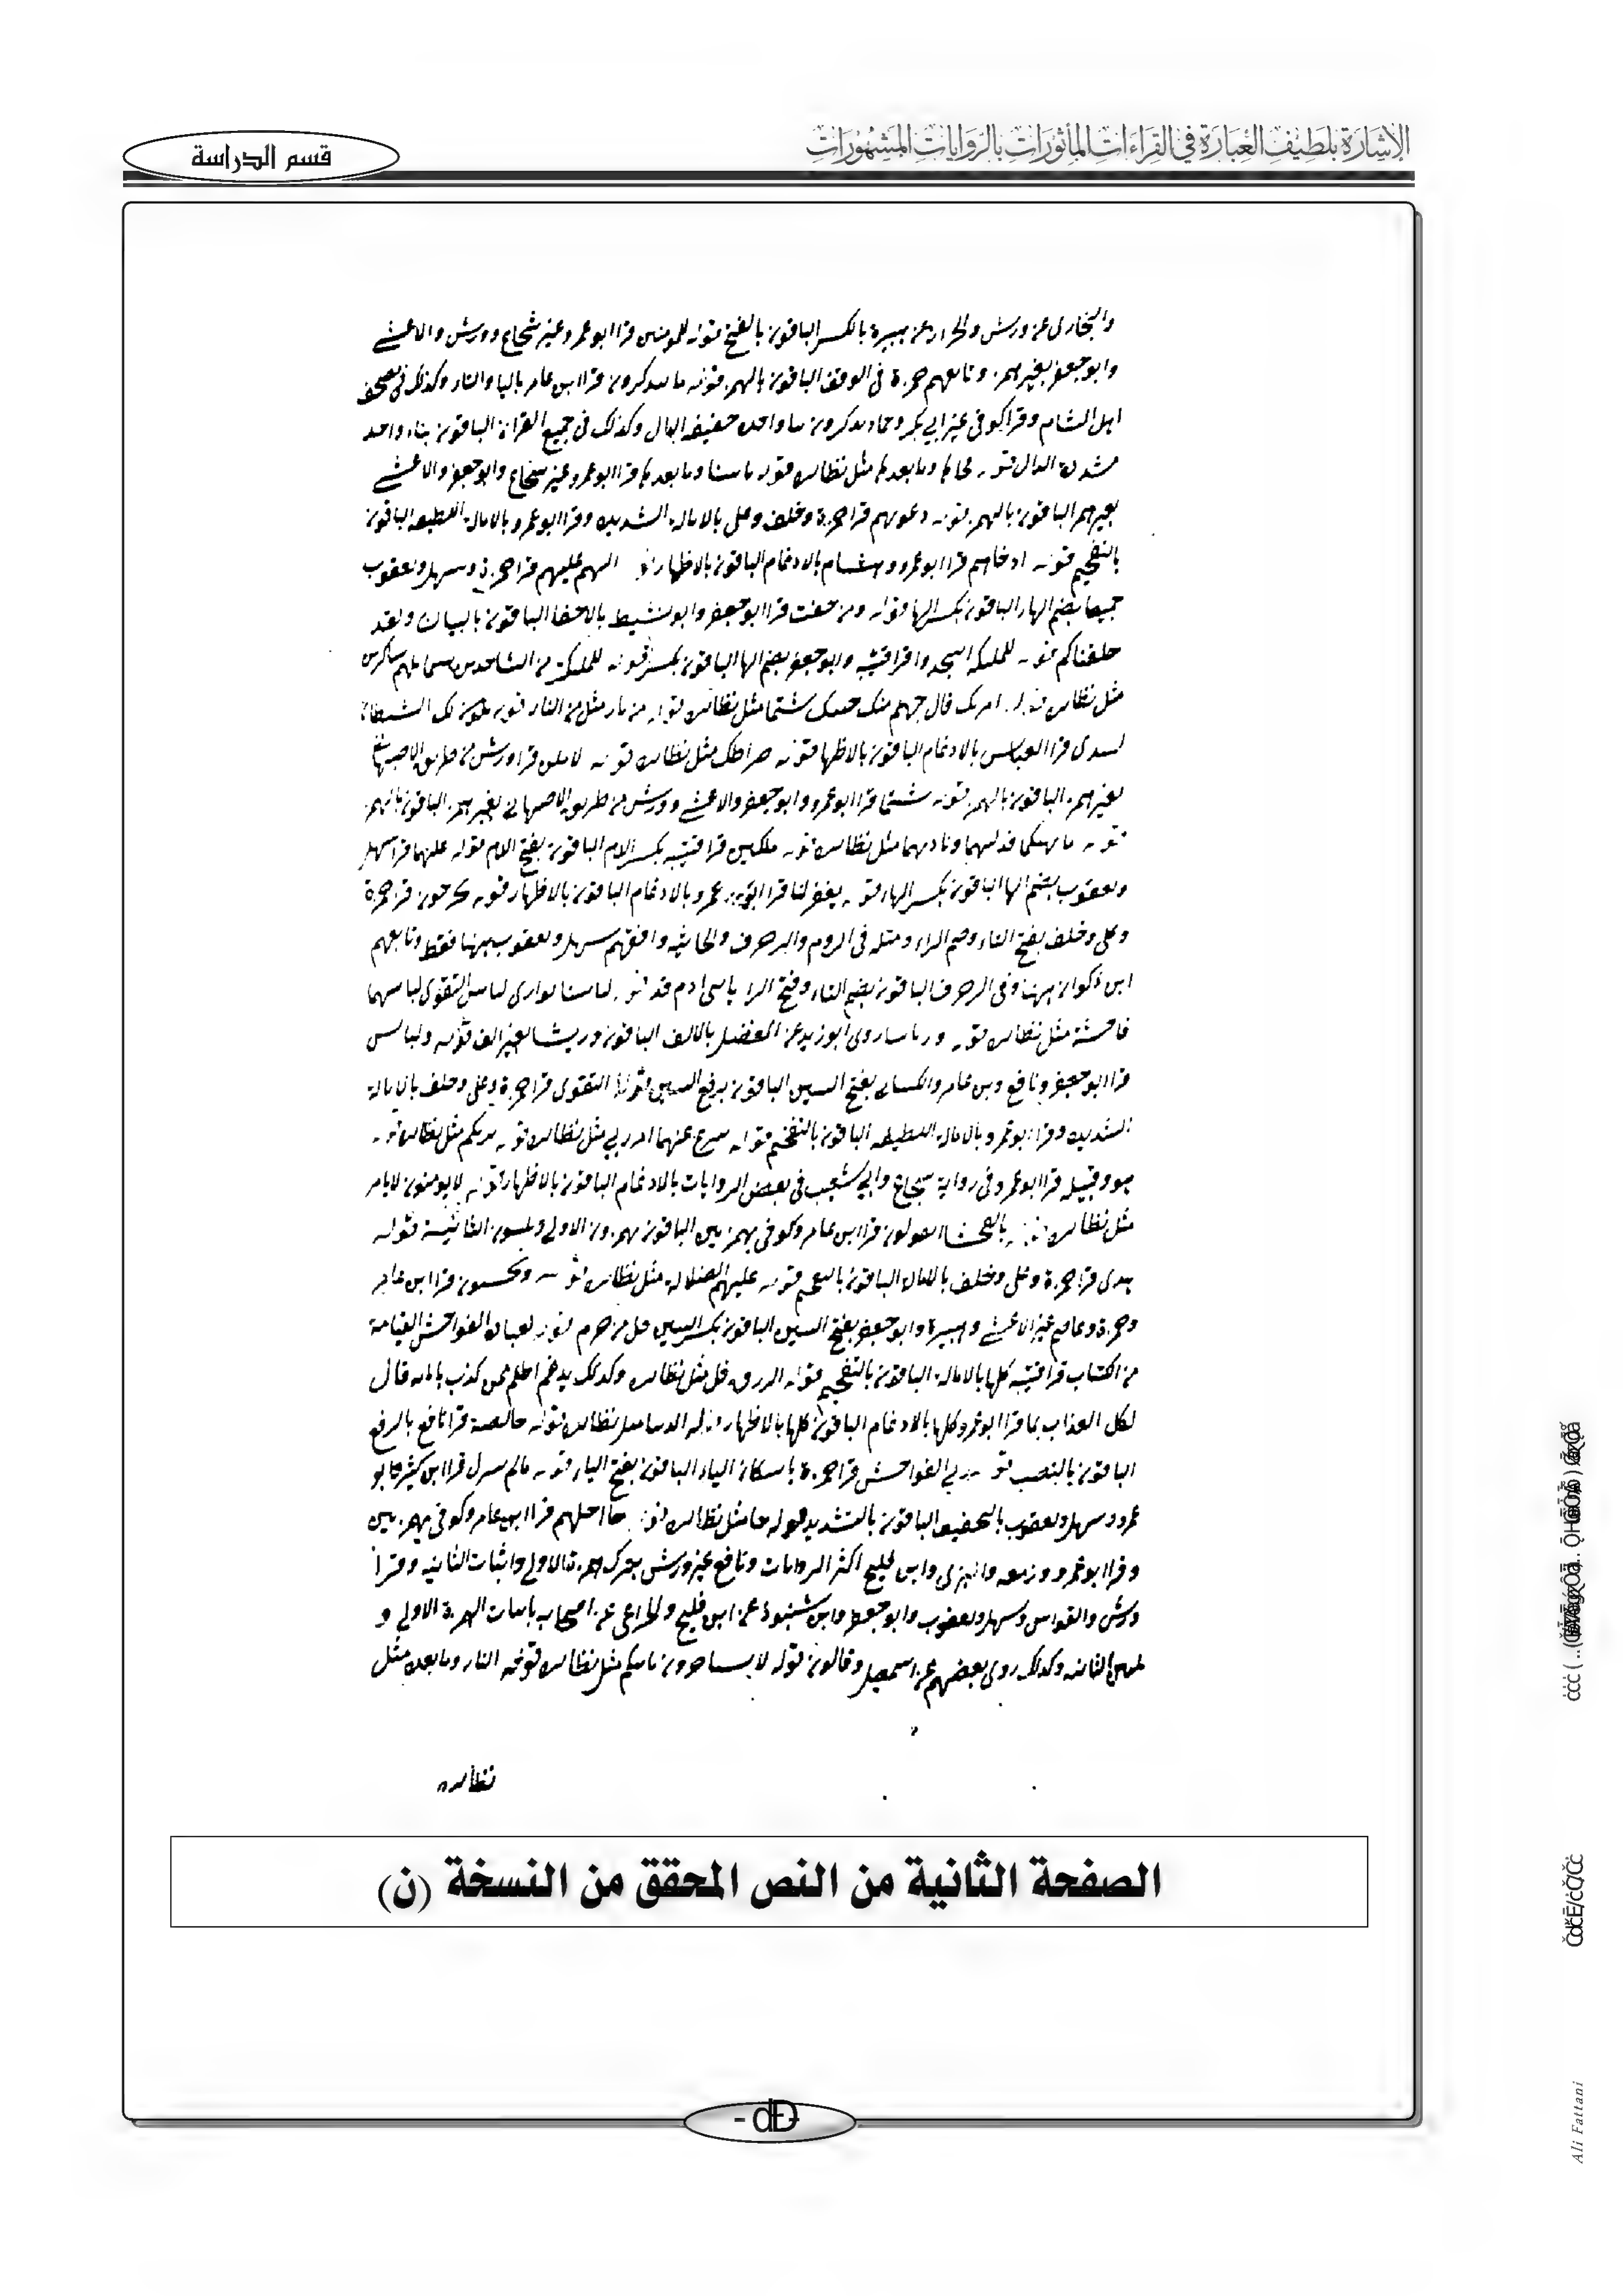 الإشارة بلطيف العبارة في القراءات المأثورات بالروايات المشهورات
قسم الدراسة
والبخاري عن ورش والخزاز عن هبيرة بالكسر الباقون بالفتح قوله للمومنين قرا ابو عمرو غير شجاع وورش والاعشى
وابو جعفر بغير همز وتابعهم حمزة في الوقف الباقون بالهمز قوله ما سدكرون قرا ابن عامر باليا والتاء وكذلك في مصحف
اهل الشام وقرا كوفي غير ابي بكر وحماد بدكرون بتا واحده خفيفه الدال وكذلك في جميع القران الباقون بتاء واحد
مشددة الدال قوله وما بعده مثل نظايره قوله باسنا وما بعده قرا ابو عمرو غير شجاع وابو جعفر والاعشى
بغير همز الباقون بالهمز قوله دعويهم قرا حمزة وخلف وعلي بالاماله الشديده وقرا ابو عمرو بالاماله اللطيفه الباقون
بالتفخيم قوله اذ جاهم قرا ابو عمرو وهشام بالادغام الباقون بالاظهار قوله اليهم عليهم قرا حمزة وسهل ويعقوب
جميعا بضم الهاء الباقون بكسر الها قوله ومن خفت قرا ابو جعفر وابو نشيط بالاخفا الباقون بالبيان ولقد
خلقناكم قوله للمليكه اسجدوا قرا قتيبه وابو جعفر بضم الها الباقون بكسر قوله للمليكة من الساجدين
مثل نظايره قوله امرتك قال جهنم منك حيث شيتما مثل نظايره قوله من نار مثل من النار قوله يكون لك الشيطان
قرا العباس بالادغام الباقون بالاظهار قوله صراطك مثل نظايره قوله لاملن قرا ورش من طريق الاصبهاني
بغير همز الباقون بالهمز قوله شيتما قرا ابو عمرو وابو جعفر والاعشى وورش من طريق الاصبهاني بغير همز الباقون بالهمز
قوله ما نهيكما فدليهما وناديهما مثل نظايره قوله ملكين قرا قتيبه بكسر اللام الباقون بفتح اللام قوله عليهما قرا سهل
ويعقوب بضم الها الباقون بكسر الهاء قوله يغفر لنا قرا ابو عمرو بالادغام الباقون بالاظهار قوله تخرجون قرا حمزة
وعلي وخلف بفتح التاء وضم الراء ومثله في الروم والزخرف والجاثيه وافقهم سهل ويعقوب ههنا فقط وتابعهم
ابن ذكوان ههنا وفي الزخرف الباقون بضم التاء وفتح الرا يابني ادم قد قوله لباسا يواري لباس التقوى لباسهما
فاحشة مثل نظايره قوله ورياسا روى ابو زيد عن المفضل بالالف الباقون وريشا بغير الف قوله ولباس
قرا ابو جعفر ونافع وبن عامر والكسائي بفتح السين الباقون برفع السين قوله التقوى قرا حمزة وعلي وخلف بالامالة
الشديده وقرا ابو عمرو بالاماله اللطيفه الباقون بالتفخيم قوله ينزع عنهما امر ربي مثل نظايره قوله يريكم مثل نظايره قوله
هو وقبيله قرا ابو عمرو في رواية شجاع وابي شعيب في بعض الروايات بالادغام الباقون بالاظهار قوله لا يومنون لا يامر
مثل نظايره قوله بالفحشا اتقولون قرا ابن عامر وكوفي بهمزتين الباقون بهمزون الاولى ويلينون الثانية قوله
هدى قرا حمزة وعلي وخلف بالامالة الباقون بالتفخيم قوله عليهم الضلالة مثل نظايره قوله ويحسبون قرا ابن عامر
وحمزة وعاصم غير الاعشى وهبيرة وابو جعفر بفتح السين الباقون بكسر السين قل من حرم قوله لعباده الفواحش القيامة
من الكتاب قرا قتيبه كلها بالاماله الباقون بالتفخيم قوله الرزق قل مثل نظايره وكذلك يدغم اظلم ممن كذب باياته قال
لكل العذاب بما قرا ابو عمرو كلها بالادغام الباقون كلها بالاظهار قوله الدنيا مثل نظايره قوله خالصة قرا نافع بالرفع
الباقون بالنصب قوله ربي الفواحش قرا حمزة باسكان الياء الباقون بفتح الياء قوله مالم ينزل قرا ابن كثير وابو
عمرو وسهل ويعقوب بالتخفيف الباقون بالتشديد قوله جا مثل نظايره قوله جا اجلهم قرا ابن عامر وكوفي بهمزتين
وقرا ابو عمرو وزمعه والبزي وابن فليح اكثر الروايات ونافع غير ورش بترك الهمزة الاولى واثبات الثانيه وقرا
ورش والقواس وسهل ويعقوب وابو جعفر وابن شنبوذ عن ابن فليح والخزاعي عن اصحابه باثبات الهمزة الاولى و
تليين الثانيه وكذلك روى بعضهم عن اسمعيل وقالون قوله لا يستاخرون ياتينكم مثل نظايره قوله النار وما بعده مثل
نظايره
الصفحة الثانية من النص المحقق من النسخة (ن)
Ali Fattani